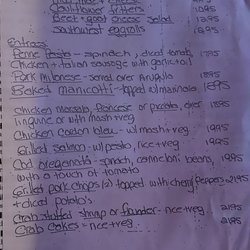 Cauliflower fritters 1095
Beet + goat cheese salad 1295
Southwest eggrolls 1295
Entrees
Penne Pasta - spinach, diced tomato, 1795
Chicken + Italian sausage with garlic + oil
Pork Milanese - served over Arugula 1895
Baked manicotti - topped w/ marinara 1895
Chicken marsala, francese or picata, over 1895
linguine or with mash + veg
Chicken Cordon bleu - w/ mash + veg 1995
Grilled Salmon - w/ pesto, rice + veg 1995
Cod oreganata - spinach, cannelloni beans, 1895
with a touch of tomato
Grilled Pork Chops (2) topped with cherry Peppers - 2195
+ diced potato's
Crab stuffed shrimp or flounder - rice + veg 2195
Crab Cakes - rice + veg 2195